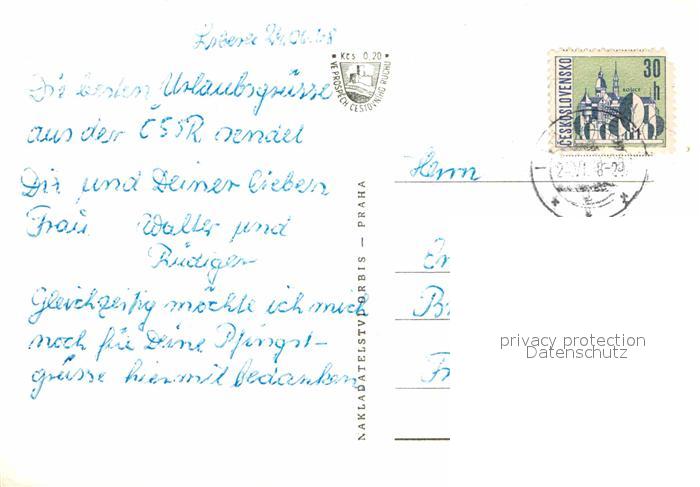 24.06.68
Die besten Urlaubsgrüsse
aus der ČSSR sendet
Dir und Deiner lieben
Frau Walter und
Rüdiger
Gleichzeitig möchte ich mich
noch für Deine Pfingst-
grüsse hiermit bedanken
Kčs 0,20
VE PROSPĚCH CESTOVNÍHO RUCHU
NAKLADATELSTVÍ ORBIS — PRAHA
ČESKOSLOVENSKO
30 h
KOŠICE
Herrn
Er
Br
Fr
privacy protection
Datenschutz